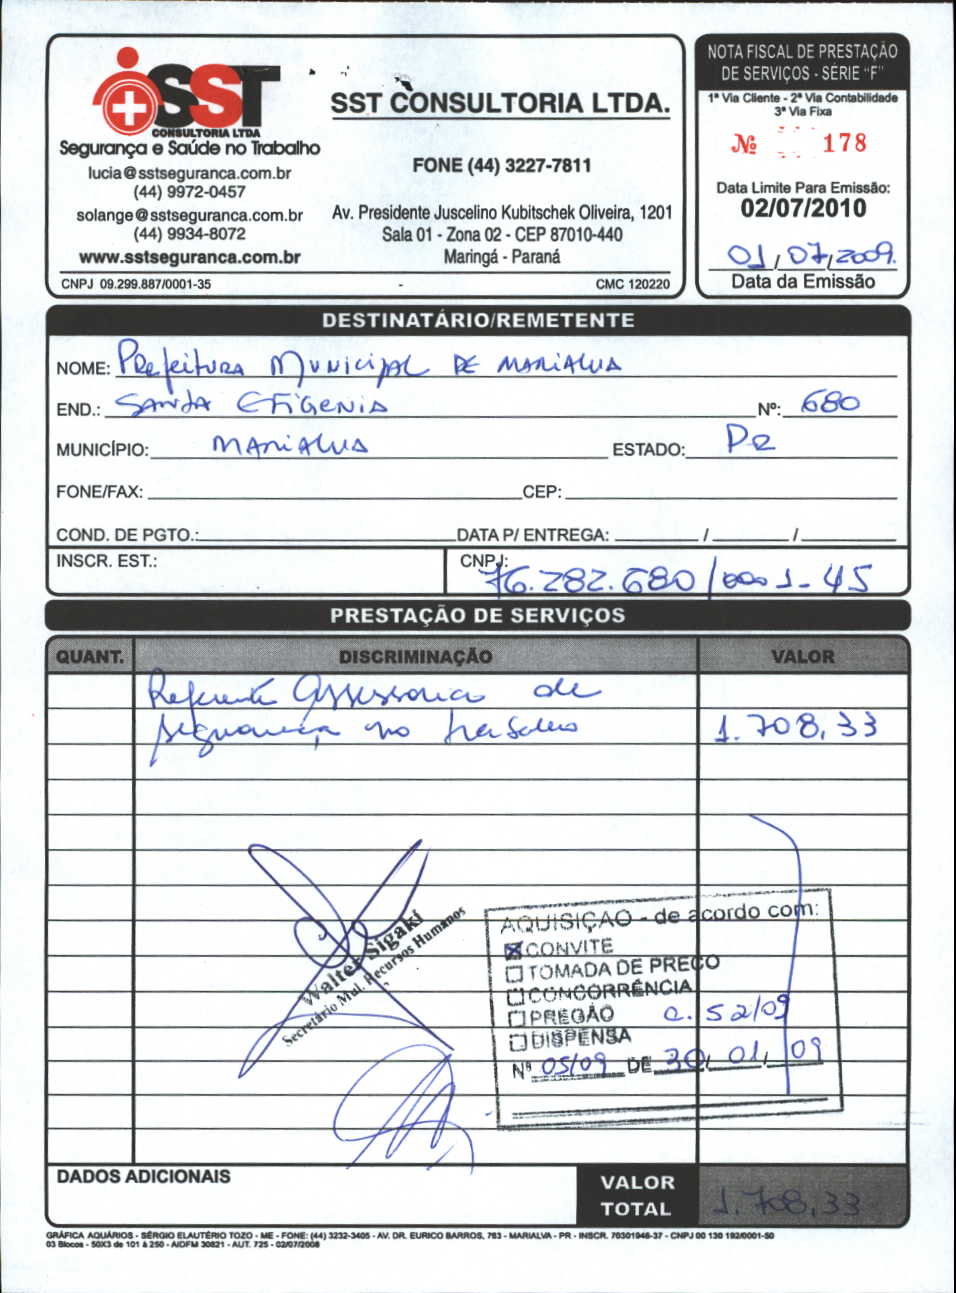 SST
CONSULTORIA LTDA
Segurança e Saúde no Trabalho
lucia@sstseguranca.com.br
(44) 9972-0457
solange@sstseguranca.com.br
(44) 9934-8072
www.sstseguranca.com.br
CNPJ 09.299.887/0001-35
SST CONSULTORIA LTDA.
FONE (44) 3227-7811
Av. Presidente Juscelino Kubitschek Oliveira, 1201
Sala 01 - Zona 02 - CEP 87010-440
Maringá - Paraná
CMC 120220
NOTA FISCAL DE PRESTAÇÃO
DE SERVIÇOS - SÉRIE "F"
1ª Via Cliente - 2ª Via Contabilidade
3ª Via Fixa
Nº 178
Data Limite Para Emissão:
02/07/2010
01/07/2009.
Data da Emissão
DESTINATÁRIO/REMETENTE
NOME: Prefeitura Municipal de Marialva
END.: Santa Efigenia Nº: 680
MUNICÍPIO: Marialva ESTADO: Pr
FONE/FAX: CEP:
COND. DE PGTO.: DATA P/ ENTREGA: / /
INSCR. EST.: CNPJ: 76.282.680/0001-45
PRESTAÇÃO DE SERVIÇOS
QUANT. DISCRIMINAÇÃO VALOR
Referente Assessoria de
segurança no trabalho 1.708,33
Walter Sigaki
Secretário Mul. Recursos Humanos
AQUISIÇAO - de acordo com:
☒ CONVITE
☐ TOMADA DE PREÇO
☐ CONCORRÊNCIA
☐ PREGÃO C. 52/09
☐ DISPENSA
Nº 05/09 DE 30/01/09
DADOS ADICIONAIS
VALOR
TOTAL 1.708,33
GRÁFICA AQUÁRIOS - SÉRGIO ELAUTÉRIO TOZO - ME - FONE: (44) 3232-3405 - AV. DR. EURICO BARROS, 763 - MARIALVA - PR - INSCR. 70301946-37 - CNPJ 00 130 192/0001-50
03 Blocos - 50X3 de 101 à 250 - AIDFM 30821 - AUT. 725 - 02/07/2008